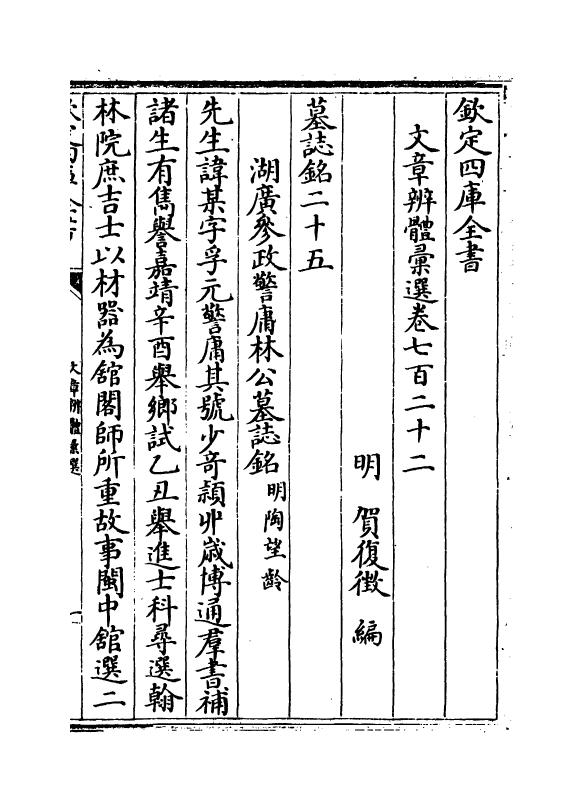 欽定四庫全書
文章辨體彙選卷七百二十二
明 賀復徴 編
墓誌銘二十五
湖廣參政警庸林公墓誌銘 明陶望齡
先生諱某字孚元警庸其號少竒頴丱歳博通羣書補
諸生有雋譽嘉靖辛酉舉鄉試乙丑舉進士科尋選翰
林院庶吉士以材器為舘閣師所重故事閩中舘選二
文章辨體彙選